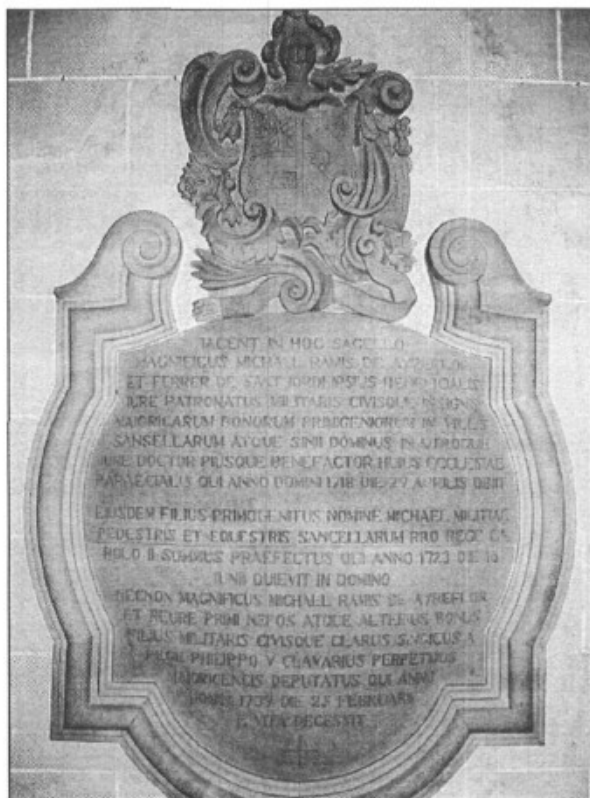 IACENT IN HOC SACELLO
MAGNIFICUS MICHAEL RAMIS DE AYREFLOR
ET FERRER DE SANT JORDI IPSIUS
IURE PATRONATUS MILITARIS CIVISQUE INSIGNIS
MAIORICARUM BONORUM PRIMIGENIORUM IN VILLIS
SANSELLARUM ATQUE SINII DOMINUS IN UTROQUE
IURE DOCTOR PIUSQUE BENEFACTOR HUIUS ECCLESIAE
PARAECIALIS QUI ANNO DOMINI 1718 DIE 29 APRILIS OBIIT
EIUSDEM FILIUS PRIMOGENITUS NOMINE MICHAEL MILITIAE
PEDESTRIS ET EQUESTRIS SANCELLARUM PRO REGE CA
ROLO II SUMMUS PRAEFECTUS QUI ANNO 1723 DIE 16
IUNII QUIEVIT IN DOMINO
NECNON MAGNIFICUS MICHAEL RAMIS DE AYREFLOR
ET BEURE PRIMI NEPOS ATQUE ALTERIUS BONUS
FILIUS MILITARIS CIVISQUE CLARUS A
REGE PHILIPPO V CLAVARIUS PERPETUUS
DEPUTATUS QUI ANNO
1739 DIE 25 FEBRUARII
E VITA DECESSIT